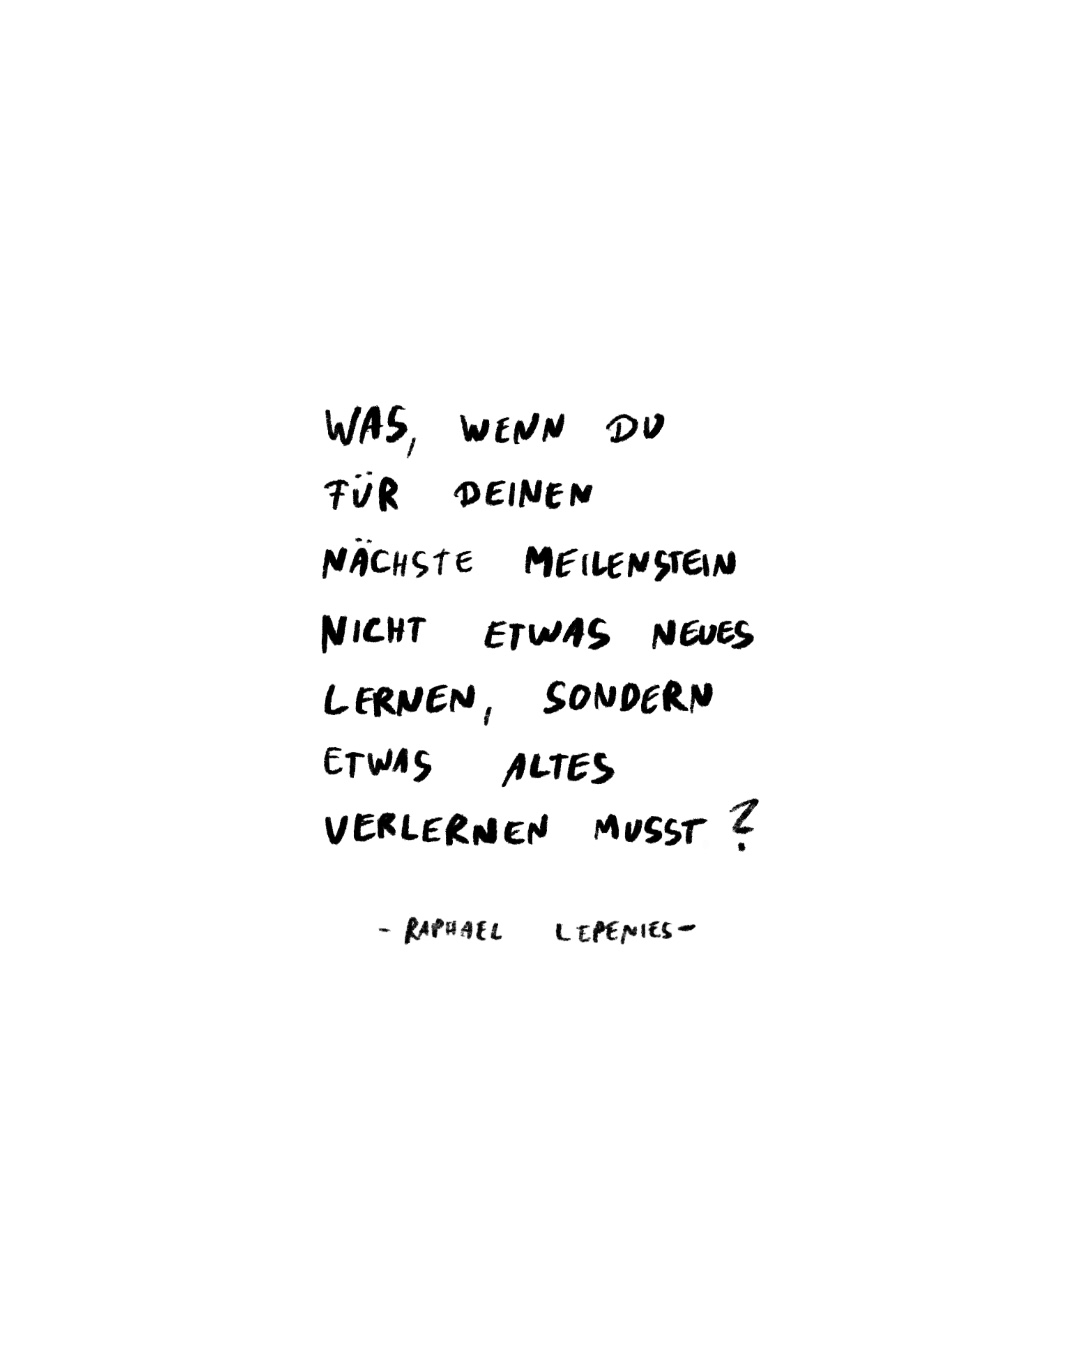 WAS, WENN DU
FÜR DEINEN
NÄCHSTE MEILENSTEIN
NICHT ETWAS NEUES
LERNEN, SONDERN
ETWAS ALTES
VERLERNEN MUSST?
- RAPHAEL LEPENIES-